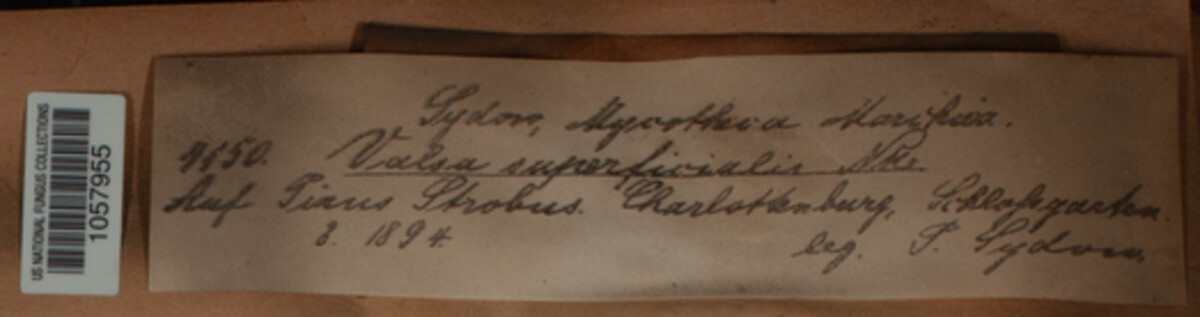 US NATIONAL FUNGUS COLLECTIONS
1057955
Sydow, Mycotheca Marchica.
Valsa superficialis Nke.
Auf Pinus Strobus. Charlottenburg, Schloßgarten.
3. 1894. leg. P. Sydow.